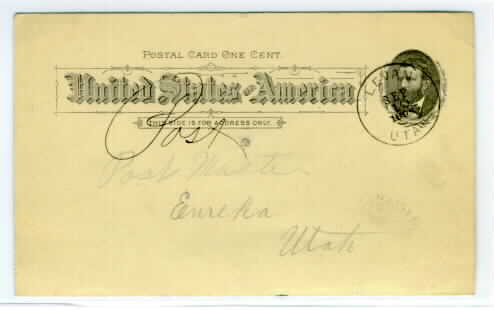 POSTAL CARD ONE CENT.
United States of America
THIS SIDE IS FOR ADDRESS ONLY.
LEVAN
UTAH
Post
Post Master
Eureka
Utah